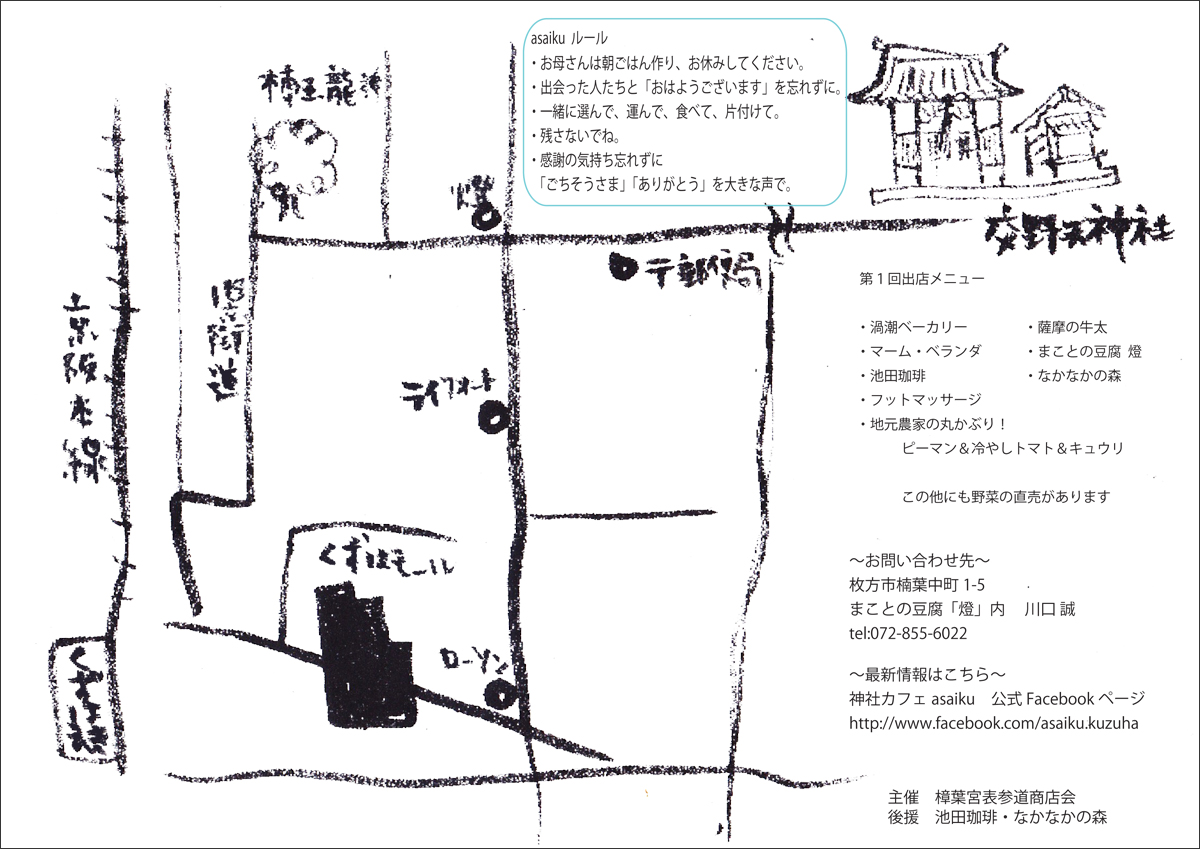 asaiku ルール
・お母さんは朝ごはん作り、お休みしてください。
・出会った人たちと「おはようございます」を忘れずに。
・一緒に選んで、運んで、食べて、片付けて。
・残さないでね。
・感謝の気持ち忘れずに
「ごちそうさま」「ありがとう」を大きな声で。
燈
交野天神社
〒郵便局
旧街道
京阪本線
ライフオート
くずはモール
ローソン
くずは駅
第１回出店メニュー
・渦潮ベーカリー
・マーム・ベランダ
・池田珈琲
・フットマッサージ
・地元農家の丸かぶり！
ピーマン＆冷やしトマト＆キュウリ
・薩摩の牛太
・まことの豆腐 燈
・なかなかの森
この他にも野菜の直売があります
～お問い合わせ先～
枚方市楠葉中町 1-5
まことの豆腐「燈」内　川口 誠
tel:072-855-6022
～最新情報はこちら～
神社カフェ asaiku　公式 Facebook ページ
http://www.facebook.com/asaiku.kuzuha
主催　樟葉宮表参道商店会
後援　池田珈琲・なかなかの森